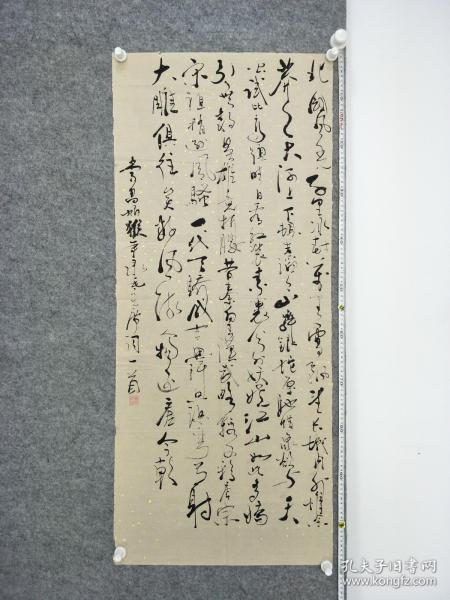 北国风光千里冰封万里雪飘望长城内外惟余
莽莽大河上下顿失滔滔山舞银蛇原驰蜡象欲与天
公试比高须晴日看红装素裹分外妖娆江山如此多娇
引无数英雄竞折腰昔秦皇汉武略输文采唐宗
宋祖稍逊风骚一代天骄成吉思汗只识弯弓射
大雕俱往矣数风流人物还看今朝
词一首
孔夫子旧书网
www.kongfz.com